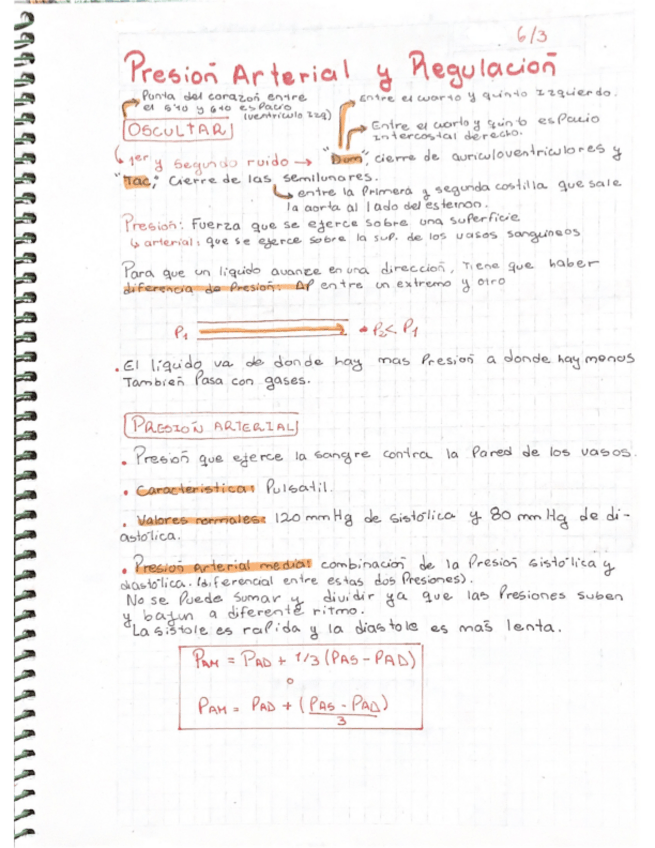 6/3
Presion Arterial y Regulacion
Punta del corazon entre
el 5to y 6to espacio
(ventriculo Izq)
Entre el cuarto y quinto Izquierdo.
OSCULTAR
Entre el cuarto y quinto espacio
intercostal derecho.
1er y segundo ruido → "Dum", cierre de auriculoventriculores y
"Tac; Cierre de las semilunares.
entre la Primera y segunda costilla que sale
la aorta al lado del esternon.
Presion: Fuerza que se ejerce sobre una superficie
↳ arterial: que se ejerce sobre la sup. de los vasos sanguineos
Para que un liquido avance en una direccion, Tiene que haber
diferencia de Presion: ΔP entre un extremo y otro
P1 → P2 < P1
.El liquido va de donde hay mas Presion a donde hay menos
Tambien Pasa con gases.
PRESION ARTERIAL
. Presion que ejerce la sangre contra la Pared de los vasos.
. Caracteristica: Pulsatil.
. Valores normales: 120 mmHg de sistolica y 80 mm Hg de di-
astolica.
. Presion Arterial media: combinacion de la Presion sistolica y
diastolica. (diferencial entre estas dos Presiones).
No se Puede Sumar y dividir ya que las Presiones suben
y bajan a diferente ritmo.
La sistole es rapida y la diastole es mas lenta.
PAM = PAD + 1/3 (PAS - PAD)
o
PAM = PAD + (PAS - PAD)
3